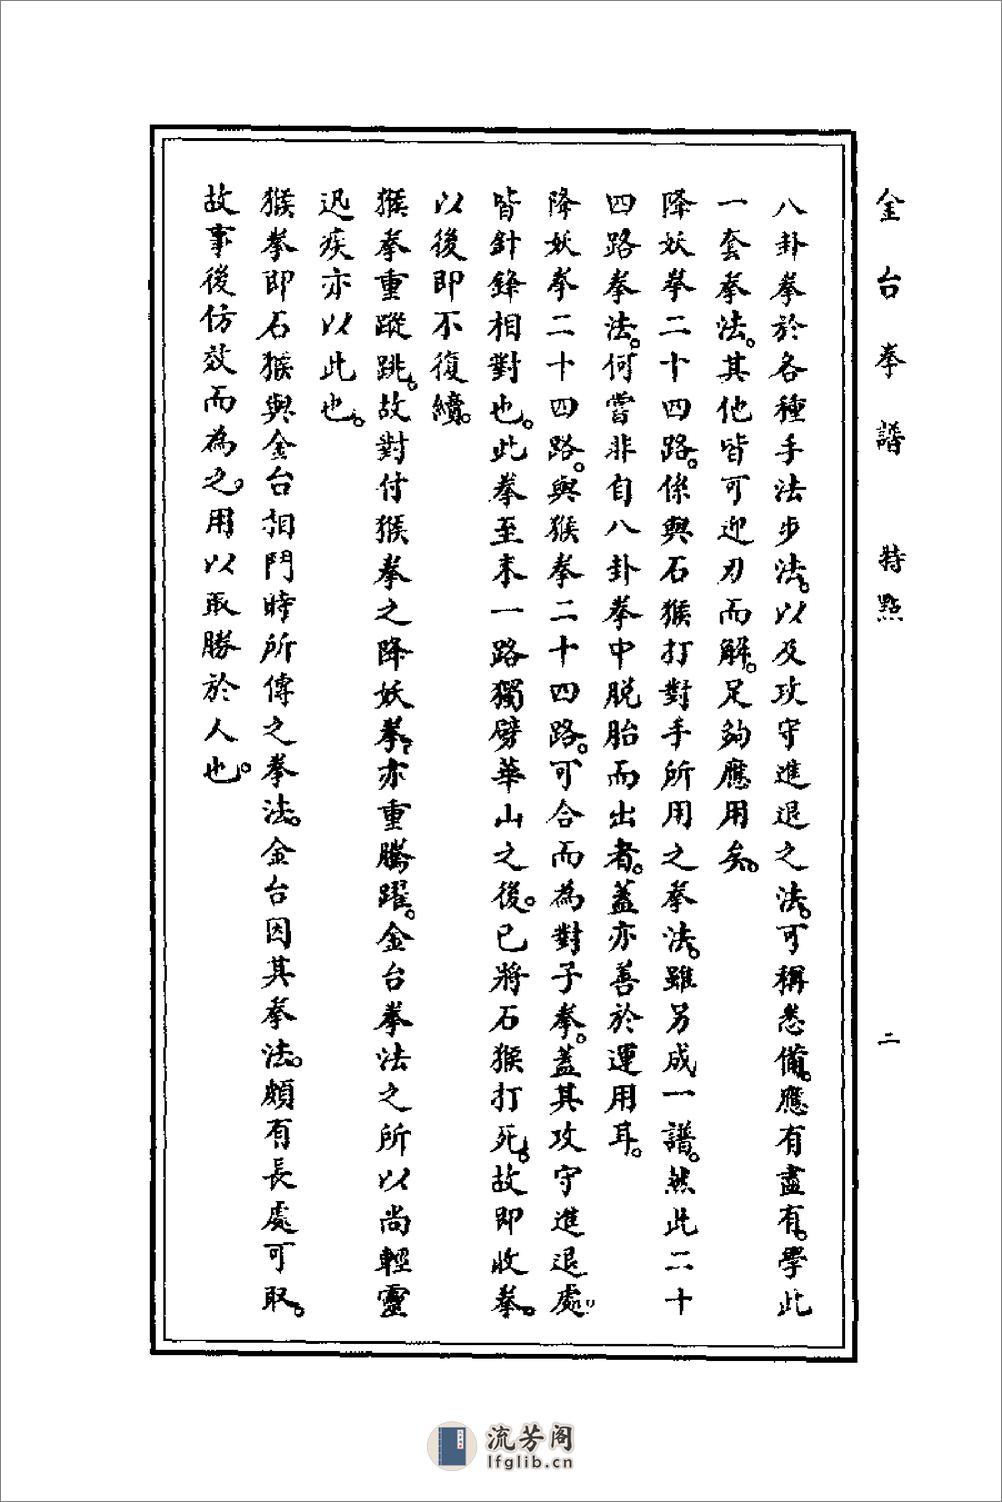 金台拳譜　特點　二
八卦拳於各種手法步法。以及攻守進退之法。可稱悉備。應有盡有。學此
一套拳法。其他皆可迎刃而解。足夠應用矣。
降妖拳二十四路。係與石猴打對手所用之拳法。雖另成一譜。然此二十
四路拳法。何嘗非自八卦拳中脱胎而出者。蓋亦善於運用耳。
降妖拳二十四路。與猴拳二十四路。可合而為對子拳。蓋其攻守進退處。
皆針鋒相對也。此拳至末一路獨劈華山之後。已將石猴打死。故即收拳。
以後即不復續。
猴拳重蹤跳。故對付猴拳之降妖拳。亦重騰躍。金台拳法之所以尚輕靈
迅疾亦以此也。
猴拳即石猴與金台相鬥時所傳之拳法。金台因其拳法。頗有長處可取。
故事後仿效而為之。用以取勝於人也。
流芳阁
lfglib.cn